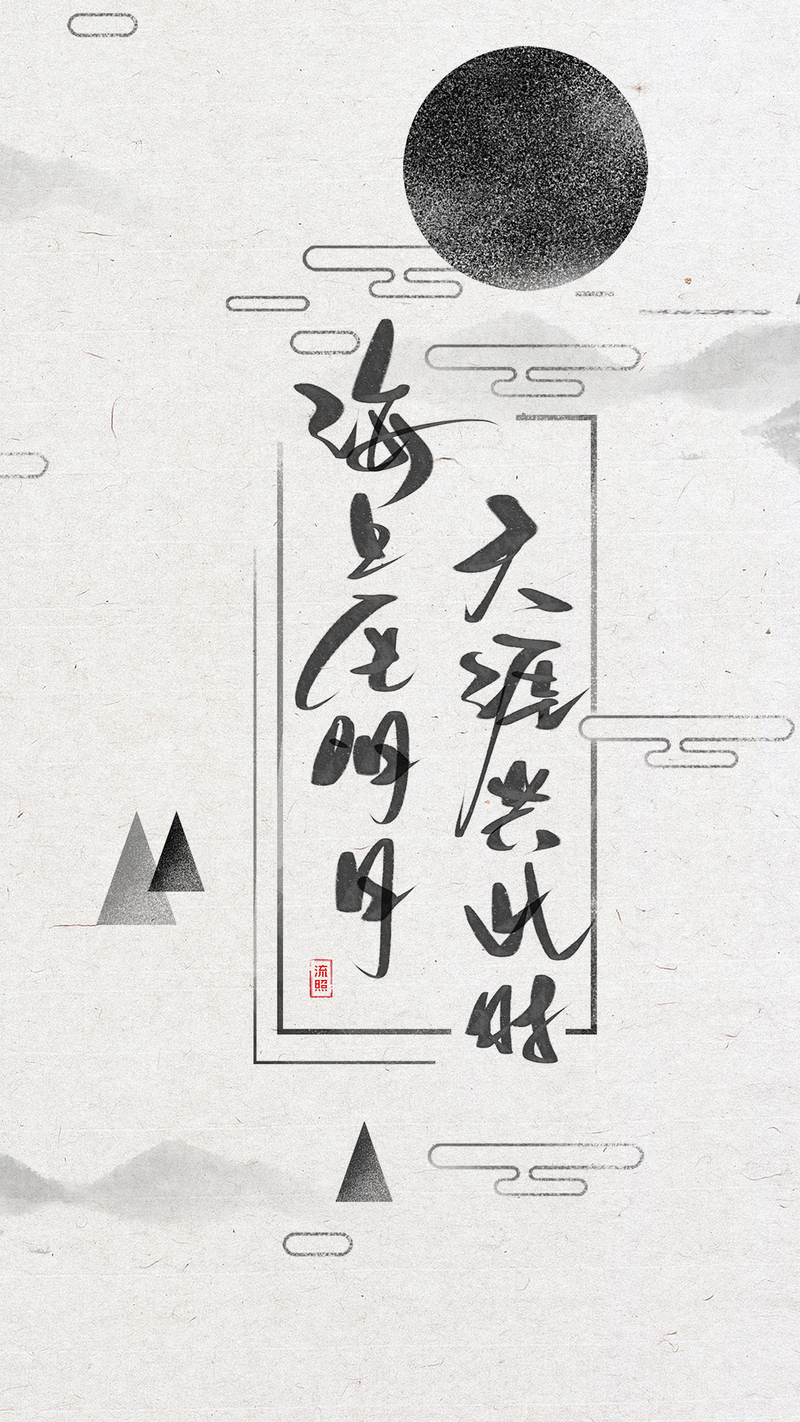 海上生明月
天涯共此时
流照